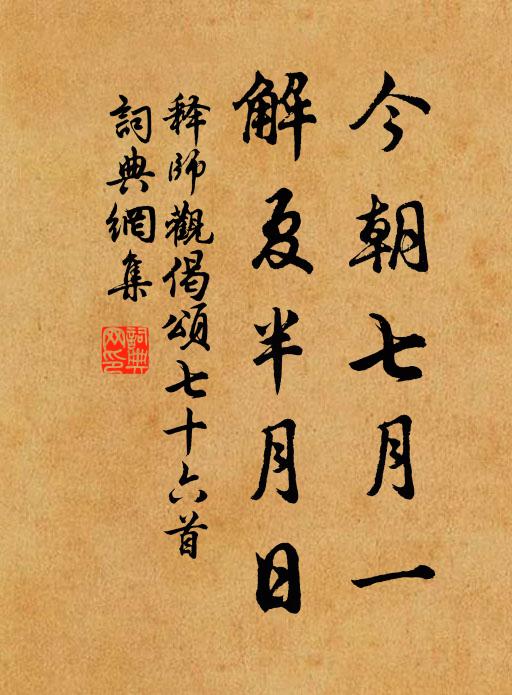 今朝七月一
解夏半月日
释師觀偈頌七十六首
詞典網集
詞典
网印